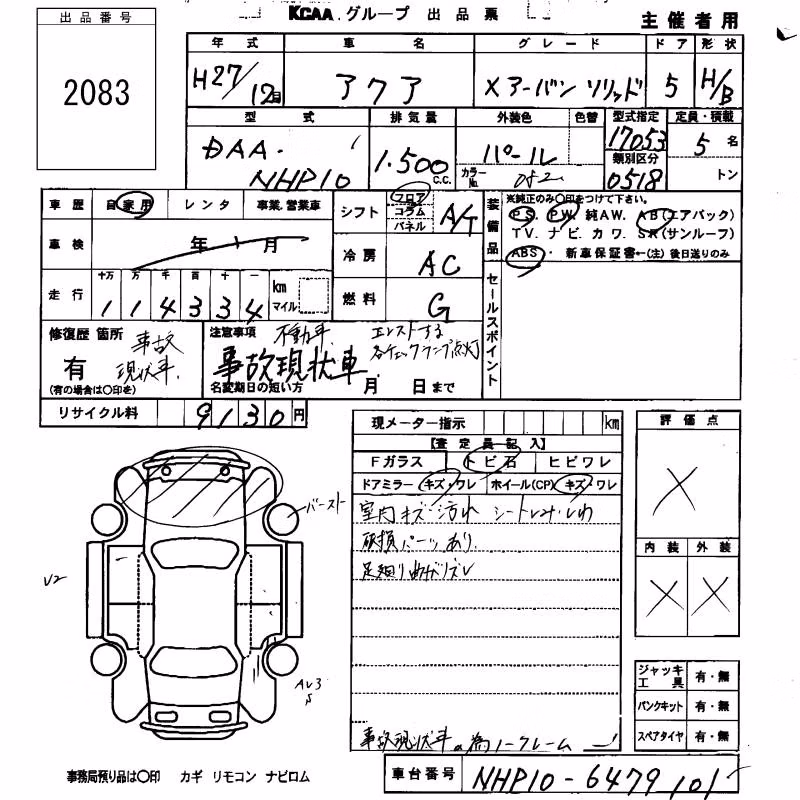 出品番号
2083
KCAA.グループ 出品票
主催者用
年式 車名 グレード ドア 形状
H27/12月 アクア Xアーバンソリッド 5 H/B
型式 排気量 外装色 色替 型式指定 定員・積載
DAA-NHP10 1.500 c.c. パール 17053 5名
カラーNo. 類別区分 0518 トン
車歴 自家用 レンタ 事業、営業車
車検 年 月
走行 十万 万 千 百 十 一
114334 km マイル
シフト フロア コラム パネル A/T
冷房 AC
燃料 G
装備品
※純正のみ〇印をつけて下さい。
PS. PW. 純AW. AB(エアバック)
TV. ナビ. カワ. SR(サンルーフ)
ABS・ 新車保証書←(注)後日送りのみ
セールスポイント
修復歴 箇所
有
(有の場合は〇印を)
事故現状車.
注意事項 不動車. エンストする
各チェックランプ点灯
事故現状車.
名変期日の短い方 月 日まで
リサイクル料 9130円
現メーター指示 km
【査定員記入】
Fガラス トビ石 ヒビワレ
ドアミラー キズ・ワレ ホイール(CP) キズ・ワレ
室内キズ・汚れ シート
破損パーツあり.
足廻り
事故現状車の為ノークレーム
評価点
X
内装 外装
X X
バースト
ジャッキ工具 有・無
パンクキット 有・無
スペアタイヤ 有・無
事務局預り品は〇印 カギ リモコン ナビロム
車台番号 NHP10-6479101